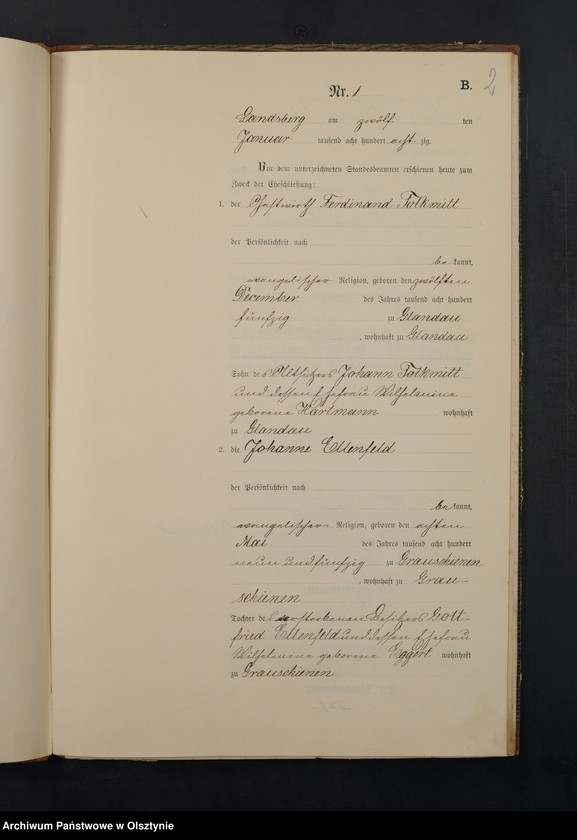 B. 2
Nr. 1
Landsberg am zwölf ten
Januar tausend acht hundert acht zig.
Vor dem unterzeichneten Standesbeamten erschienen heute zum
Zweck der Eheschließung:
1. der Gastwirth Ferdinand Tolkmitt
der Persönlichkeit nach
be kannt,
evangelischer Religion, geboren den zwölften
December des Jahres tausend acht hundert
fünfzig zu Glandau
, wohnhaft zu Glandau
Sohn des Altsitzers Johann Tolkmitt
und dessen Ehefrau Wilhelmine
geborene Hartmann wohnhaft
zu Glandau
2. die Johanne Ellenfeld
der Persönlichkeit nach
be kannt,
evangelischer Religion, geboren den achten
Mai des Jahres tausend acht hundert
neun und fünfzig zu Grauschienen
, wohnhaft zu Grau-
schienen
Tochter des verstorbenen Besitzers Gott-
fried Ellenfeld und dessen Ehefrau
Wilhelmine geborene Eggert wohnhaft
zu Grauschienen
Archiwum Państwowe w Olsztynie